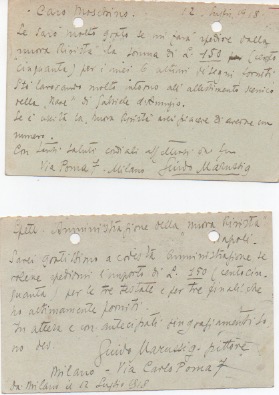 Caro Moscardino. 12 Luglio 1918
Le sarò molto grato se mi farà spedire dalla
nuova Rivista la somma di L. 150 (cento
cinquanta) per i miei 6 ultimi disegni forniti.
Sto lavorando molto intorno all'allestimento scenico
della "Nave" di Gabriele d'Annunzio.
Se è uscita la nuova Rivista avrei piacere di averne un
numero.
Con tanti saluti cordiali
Via Poma 7. Milano Guido Marussig
Spett. Amministrazione della nuova Rivista
Napoli.
Sarei gratissimo a codesta Amministrazione se
volesse spedirmi l'importo di L. 150 (centocin
quanta) per le tre testate e per tre finali che
ho ultimamente forniti.
In attesa e con anticipati ringraziamenti
Guido Marussig. pittore
Milano - Via Carlo Poma 7
Da Milano il 12 Luglio 1918